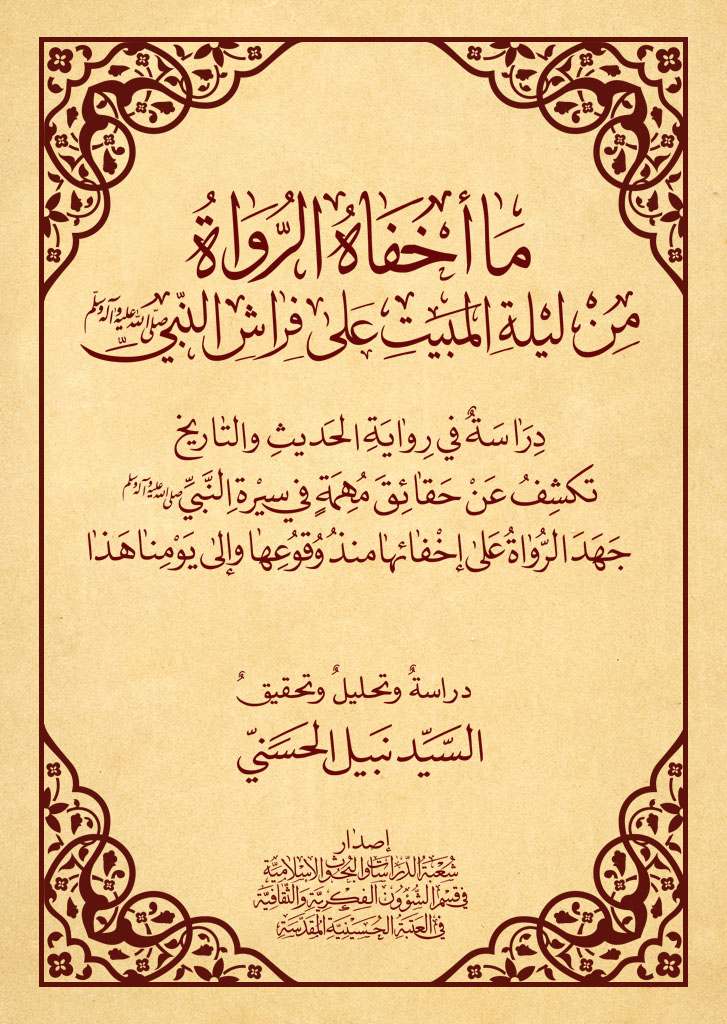 مَا أَخْفَاهُ الرُّوَاةُ
مِنْ لَيْلَةِ الْمَبِيتِ عَلَى فِرَاشِ النَّبِيِّ صلى الله عليه وآله وسلم
دِرَاسَةٌ فِي رِوَايَةِ الحَدِيثِ وَالتَّارِيخِ
تَكْشِفُ عَنْ حَقَائِقَ مُهِمَةٍ فِي سِيْرَةِ النَّبِيِّ صلى الله عليه وآله وسلم
جَهَدَ الرُّوَاةُ عَلَى إِخْفَائِهَا مُنذُ وُقُوعِهَا وَإِلَى يَوْمِنَا هَذَا
دراسةٌ وتحليلٌ وتحقيقٌ
السَّيِّد نبيل الحَسَنيّ
إصدار
شُعْبَةُ الدِّرَاسَاتِ وَالبُحُوثِ الإِسْلَامِيَّةِ
فِي قِسْمِ الشُّؤُونِ الفِكْرِيَّةِ وَالثَّقَافِيَّةِ
فِي العَتَبَةِ الحُسَيْنِيَّةِ المُقَدَّسَةِ